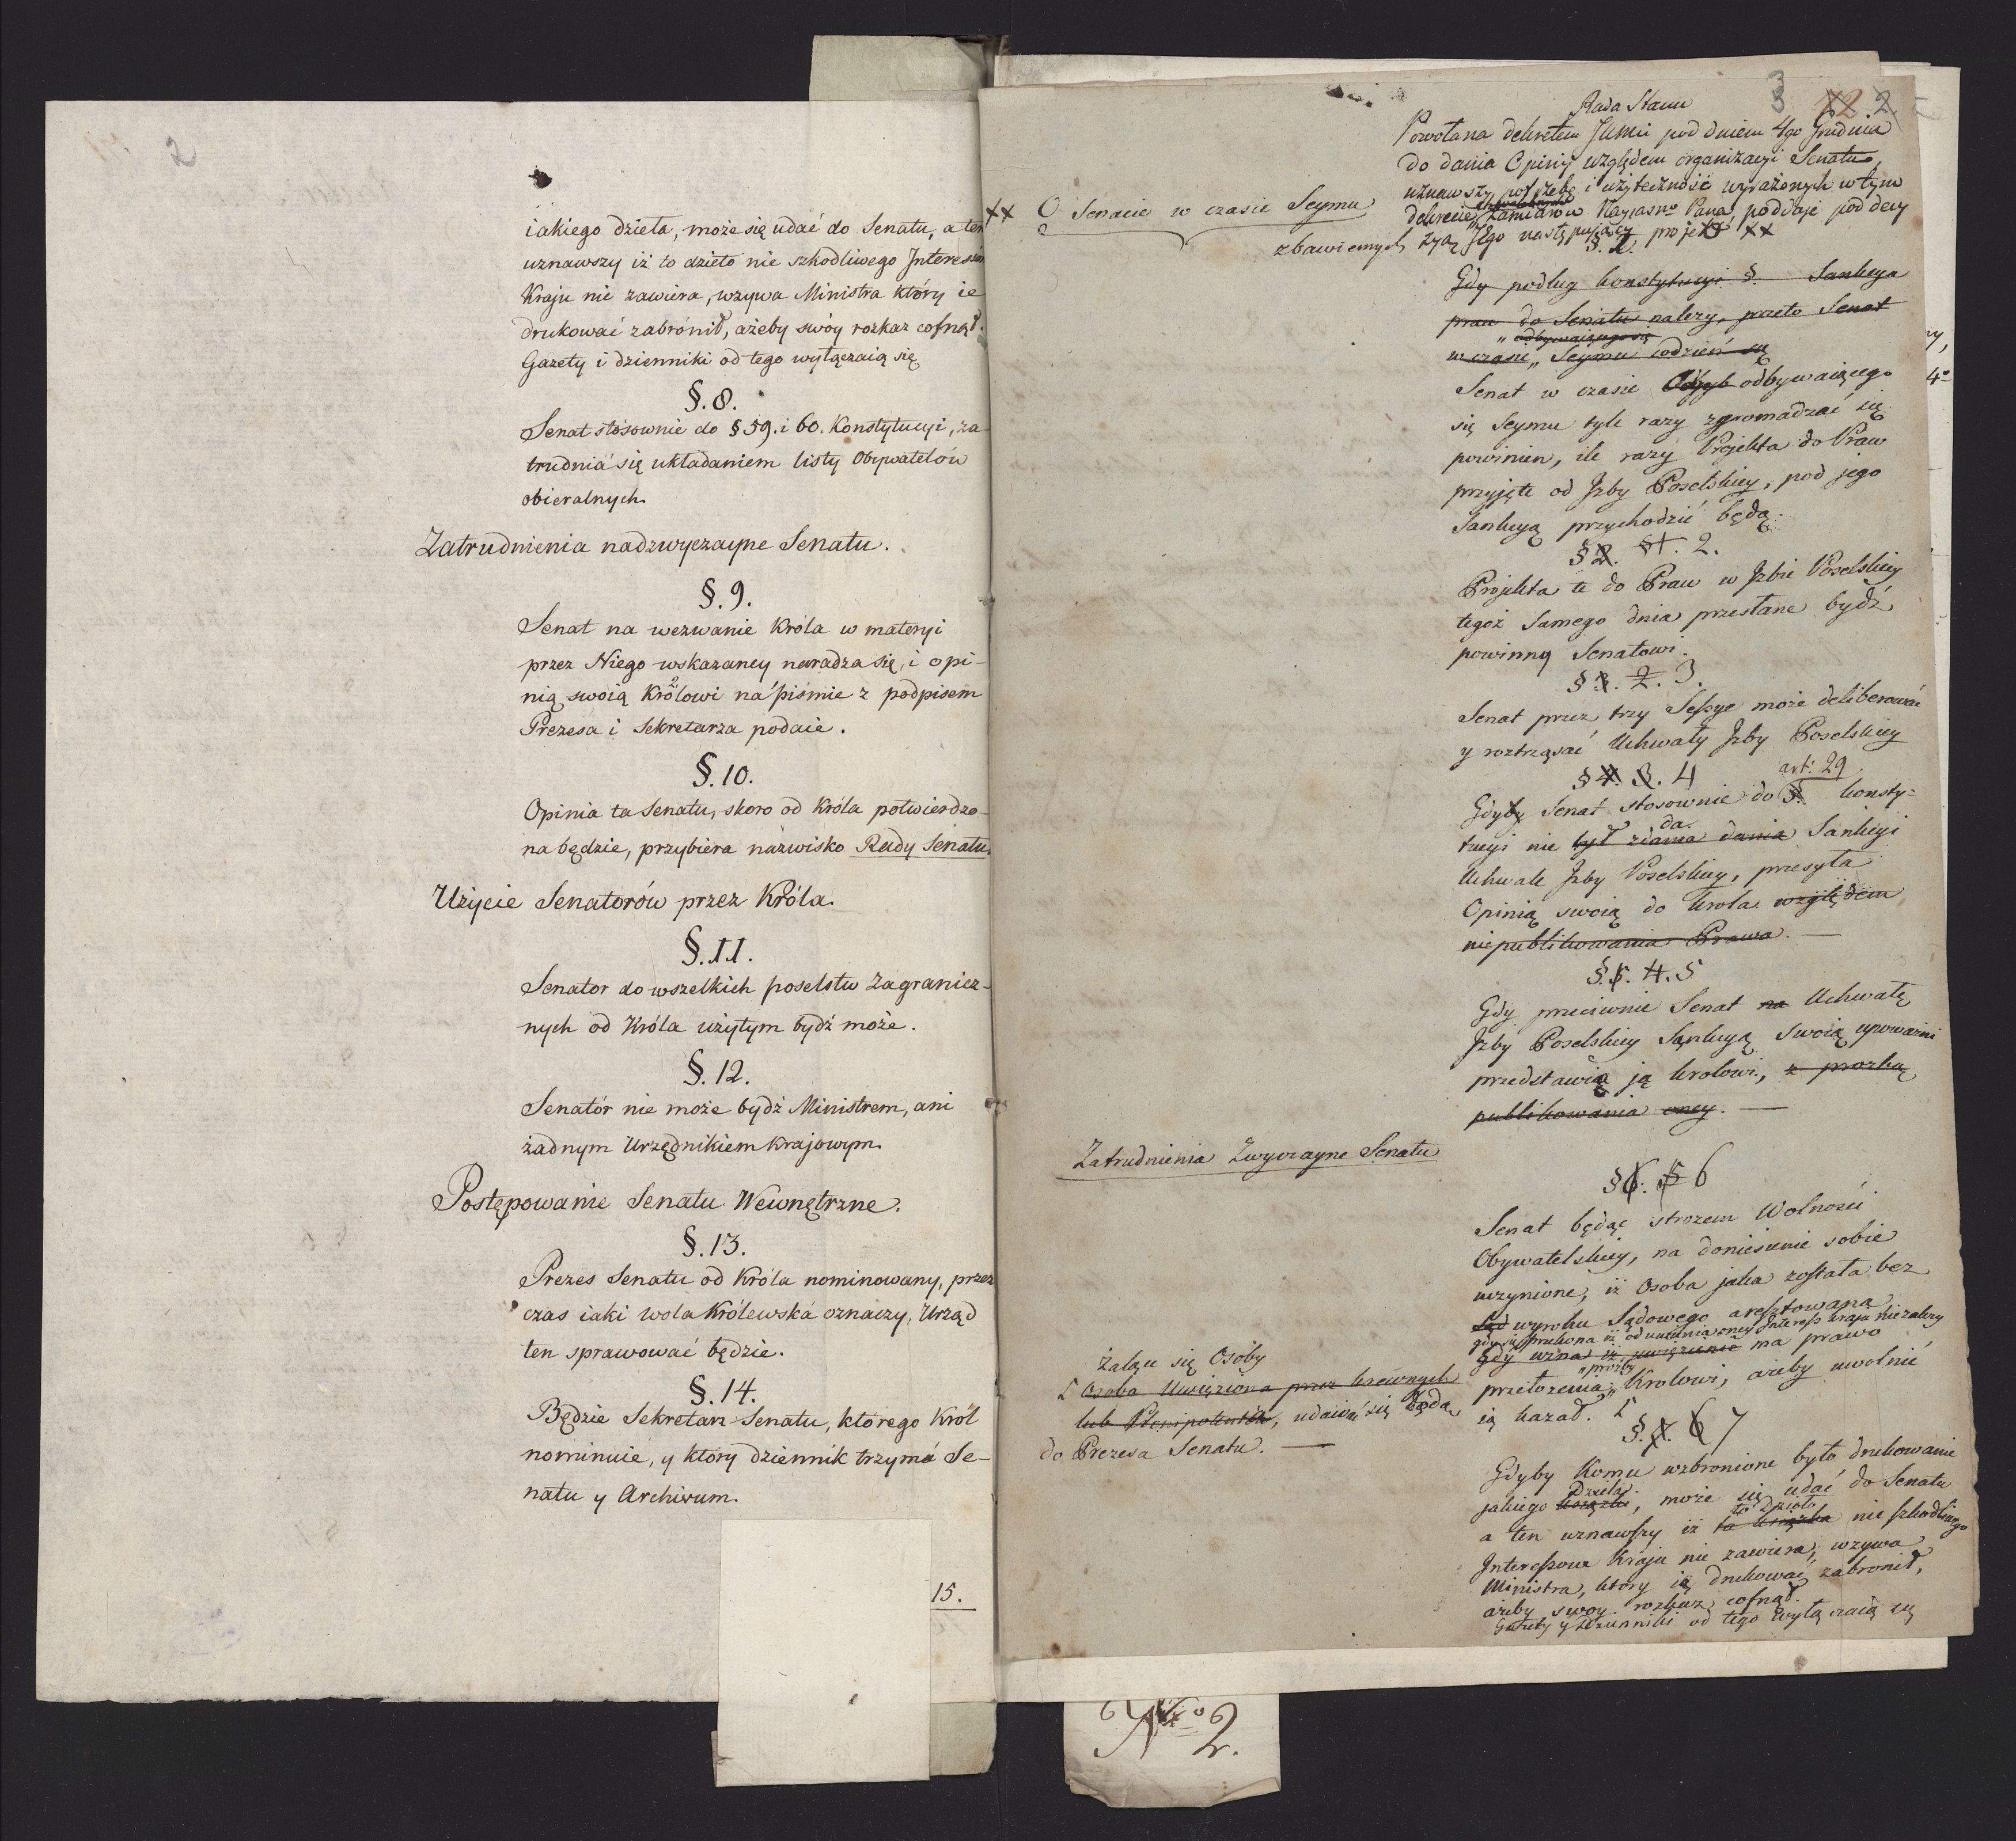 2
iakiego dzieła, może się udać do Senatu, a ten
uznawszy iż to dzieło nie szkodliwego Interessów
Kraju nie zawiera, wzywa Ministra który ie
drukować zabronił, ażeby swóy rozkaz cofnął.
Gazety i dzienniki od tego wyłączaią się
§. 8.
Senat stósownie do § 59. i 60. Konstytucyi, za-
trudnia się układaniem listy Obywatelów
obieralnych.
Zatrudnienia nadzwyczayne Senatu.
§. 9.
Senat na wezwanie Króla w materyi
przez Niego wskazaney naradza się, i opi-
nią swoią Królowi na piśmie z podpisem
Prezesa i Sekretarza podaie.
§. 10.
Opinia ta Senatu, skoro od Króla potwierdzo-
na będzie, przybiera nazwisko Rady Senatu.
Użycie Senatorów przez Króla.
§. 11.
Senator do wszelkich poselstw Zagranicz-
nych od Króla użytym bydź może.
§. 12.
Senatór nie może bydź Ministrem, ani
żadnym Urzędnikiem Krajowym.
Postępowanie Senatu Wewnętrzne.
§. 13.
Prezes Senatu od Króla nominowany, przez
czas iaki wola Królewska oznaczy, Urząd
ten sprawować będzie.
§. 14.
Będzie Sekretarz Senatu, którego Król
nominuie, y który dziennik trzyma Se-
natu y Archiwum.
15.
3 2 2
3
Rada Stanu
Powołana dekretem JKMci pod dniem 4go Grudnia
do dania Opinij względem organizacyi Senatu,
uznawszy potrzebę i użyteczność wyrażonych w tym
dekrecie zamiarów Nayiasno Pana, poddaje pod decy
zyą Jego następujący projekt xx
xx O Senacie w czasie Seymu
zbawiennych
§. 1.
Gdy podług konstytucyi §. Sankcya
praw do Senatu należy, przeto Senat
odbywaiącego się
w czasie Seymu codzień się
Senat w czasie odbywaiącego
się Seymu tyle razy zgromadzać się
powinien, ile razy Projekta do Praw
przyjęte od Jzby Poselskiey, pod jego
Sankcyą przychodzić będą.
§ 2. §1. 2.
Projekta te do Praw w Jzbie Poselskiey
tegoż samego dnia przesłane bydź
powinny Senatowi.
§ 3. 2. 3.
Senat przez trzy Sessye może deliberować
y roztrząsać Uchwały Jzby Poselskiey
§ 4. 3. 4
art: 29
Gdyby Senat stosownie do §. konsty=
da
tucyi nie był zdania dania Sankcyi
Uchwale Jzby Poselskiey, przesyła
Opinią swoią do Krola względem
niepublikowania Prawa. —
§. 5. 4. 5
Gdy przeciwnie Senat na Uchwałę
Jzby Poselskiey Sankcyą swoią upoważni
przedstawia ją krolowi, z prozbą
publikowania oney. —
Zatrudnienia Zwyczayne Senatu
§ 6. 5 6
Senat będąc strozem Wolności
Obywatelskiey, na doniesienie sobie
uczynione, iż Osoba jaka została bez
Sąd wyroku Sądowego aresztowana
gdy się przekona iż od uwięzienia oney Interess kraju nie zależy
Gdy uzna iż uwięzienie ma prawo
prozby
przełożenia Krolowi, ażeby uwolnić
ią kazał.
żaląe się Osoby
Osoba Uwięziona przez krewnych
lub Plenipotenta, udawać się będą
do Prezesa Senatu. —
§. 7. 6 7
Gdyby Komu wzbronione było drukowanie
Dzieła
jakiego książki, może się udać do Senatu
to Dzieło
a ten uznawszy iż ta książka nie szkodliwego
Interessowi Kraju nie zawiera, wzywa
Ministra, ktory ią drukować zabronił,
ażeby swoy rozkaz cofnął.
Gazety y dzienniki od tego wyłączaią się
y,
4o
No 2.